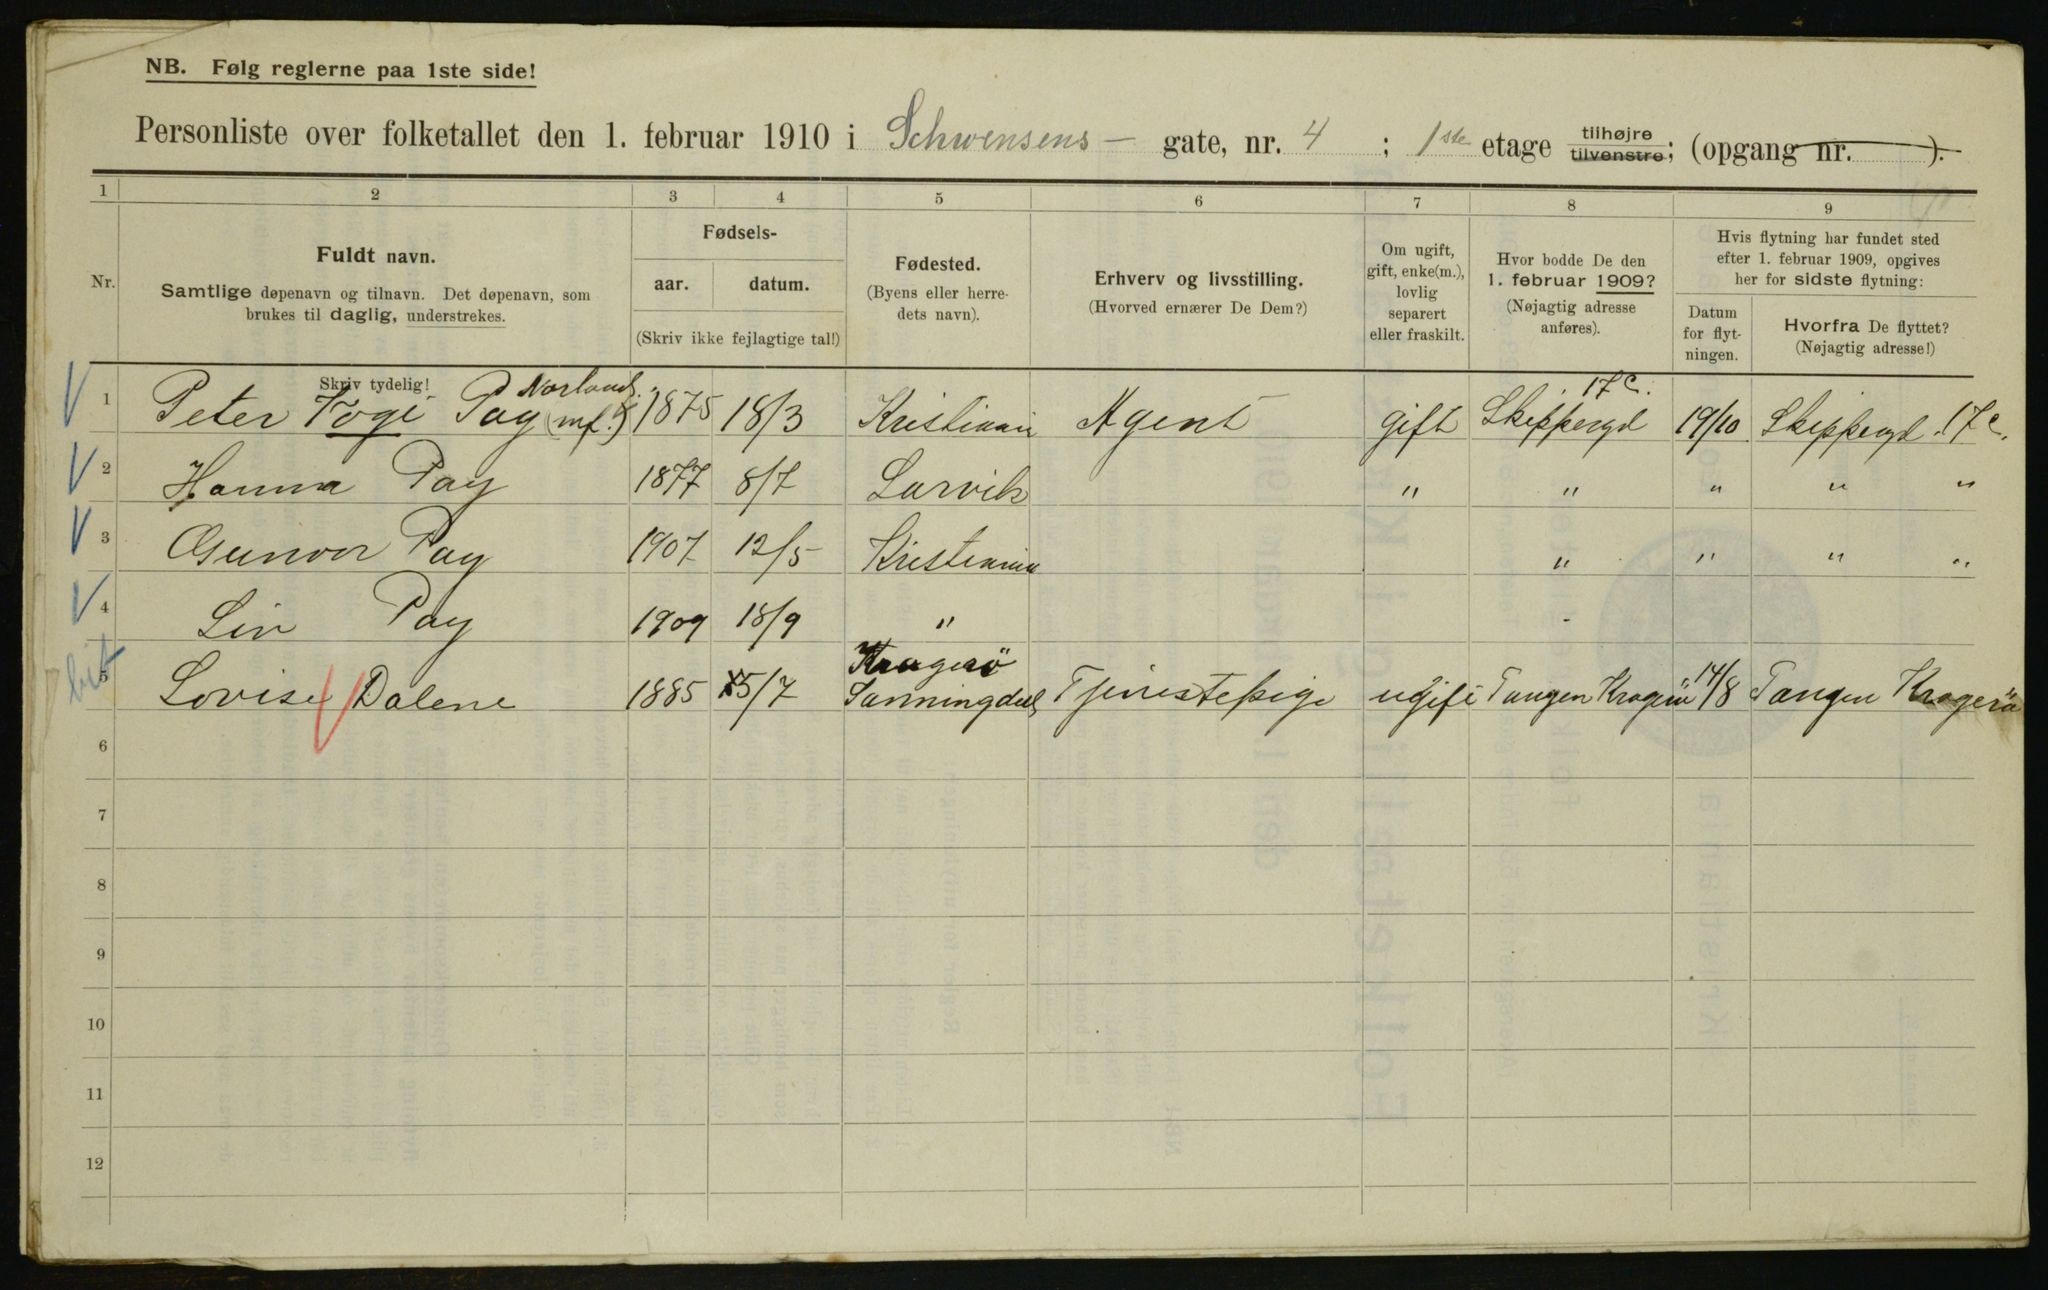 NB. Følg reglerne paa 1ste side!
Personliste over folketallet den 1. februar 1910 i Schwensens — gate, nr. 4 ; 1ste etage tilhøjre tilvenstre; (opgang nr. ).
1 2 3 4 5 6 7 8 9
Nr.
Fuldt navn.
Samtlige døpenavn og tilnavn. Det døpenavn, som
brukes til daglig, understrekes.
Skriv tydelig!
Fødsels-
aar. datum.
(Skriv ikke fejlagtige tal!)
Fødested.
(Byens eller herre-
dets navn).
Erhverv og livsstilling.
(Hvorved ernærer De Dem?)
Om ugift,
gift, enke(m.),
lovlig
separert
eller fraskilt.
Hvor bodde De den
1. februar 1909?
(Nøjagtig adresse
anføres).
Hvis flytning har fundet sted
efter 1. februar 1909, opgives
her for sidste flytning:
Datum
for flyt-
ningen.
Hvorfra De flyttet?
(Nøjagtig adresse!)
1 Peter Pay (mf.) 1875 18/3 Kristiania Agent gift Skippergd 17c. 19/10 Skippergd. 17c.
2 Hanna Pay 1877 8/7 Larvik " " " " "
3 Gunvor Pay 1907 12/5 Kristiania " " " "
4 Liv Pay 1909 18/9 "
Kragerø
5 Lovise Dalene 1885 5/7 Sanningdal Tjenestepige ugift Tangen Kragerø 14/8 Tangen Kragerø
6
7
8
9
10
11
12